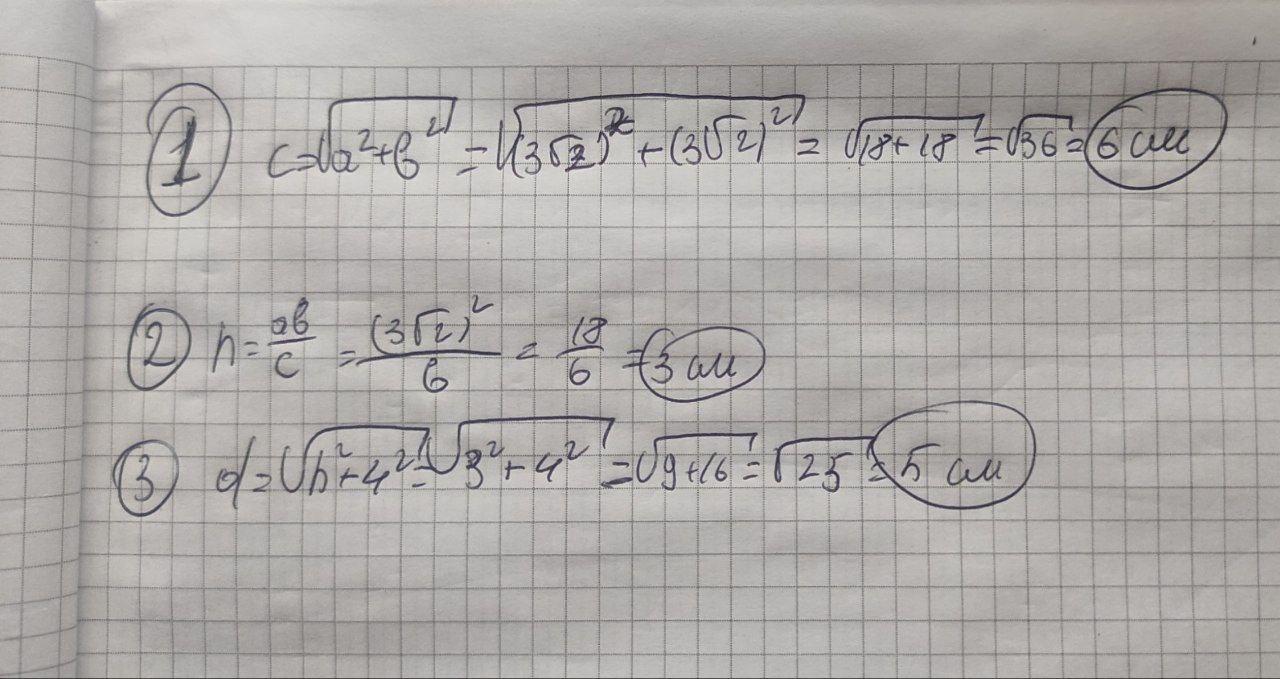 1 c=√(a²+b²) = √((3√2)²+(3√2)²) = √(18+18) = √36 = 6 см
2 h = ab/c = (3√2)²/6 = 18/6 = 3 см
3 d = √(h²+4²) = √(3²+4²) = √(9+16) = √25 = 5 см